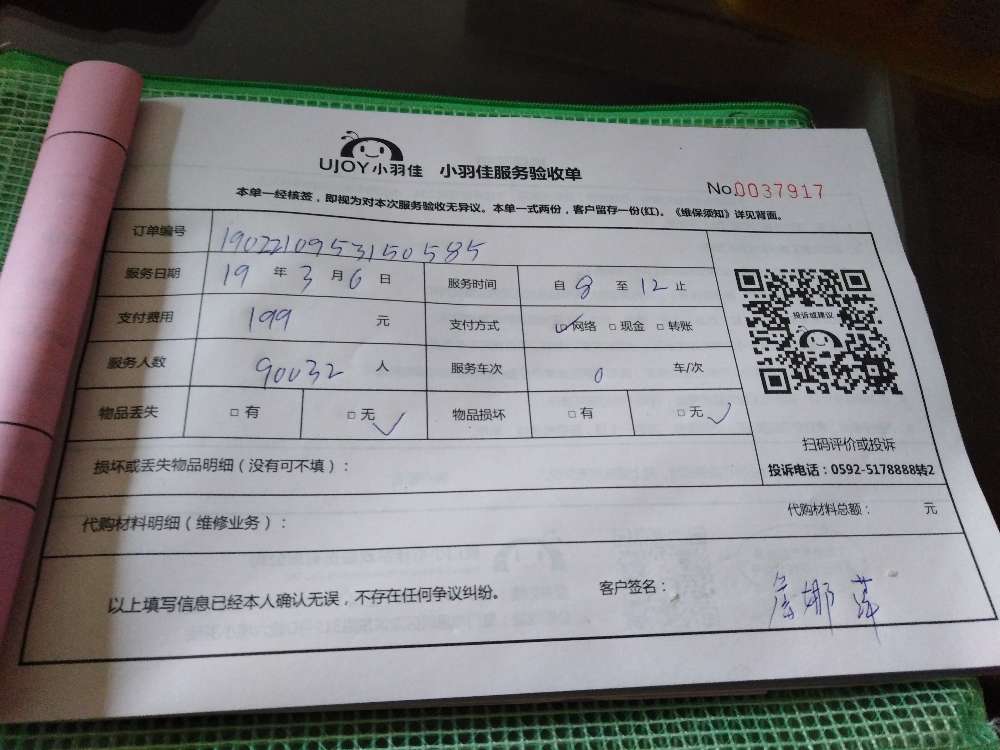 UJOY小羽佳 小羽佳服务验收单
No.0037917
本单一经核签，即视为对本次服务验收无异议。本单一式两份，客户留存一份(红)。《维保须知》详见背面。
订单编号 1902210953150585
服务日期 19 年 3 月 6 日 服务时间 自 8 至 12 止
支付费用 199 元 支付方式 □网络 □现金 □转账
服务人数 90032 人 服务车次 0 车/次
物品丢失 □有 □无 物品损坏 □有 □无
投诉或建议
扫码评价或投诉
投诉电话：0592-5178888转2
损坏或丢失物品明细（没有可不填）：
代购材料明细（维修业务）： 代购材料总额： 元
以上填写信息已经本人确认无误，不存在任何争议纠纷。 客户签名：